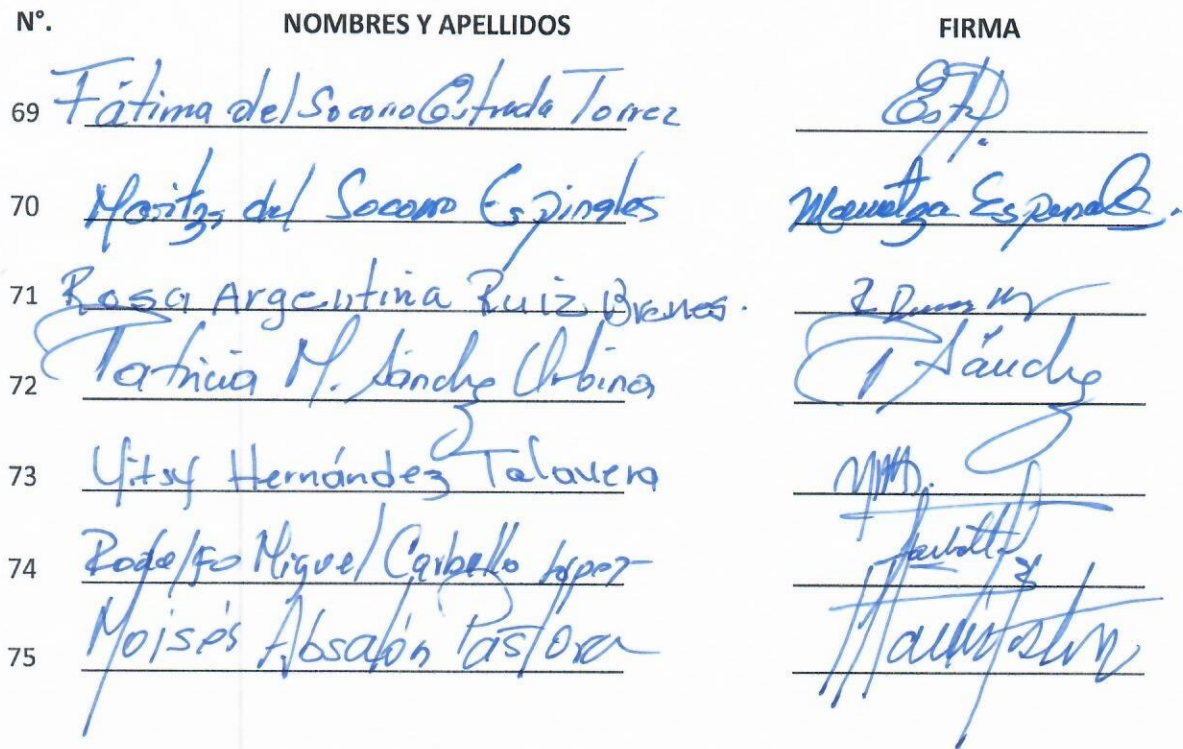 N°. NOMBRES Y APELLIDOS FIRMA
69 Fátima del Socorro Estrada Torrez
70 Maritza del Socorro Espinales Maritza Espinales.
71 Rosa Argentina Ruiz Brenes.
72 Patricia M. Sánchez Urbina P Sánchez
73 Yitsy Hernández Talavera
74 Rodolfo Miguel Carballo López
75 Moisés Absalón Pastora